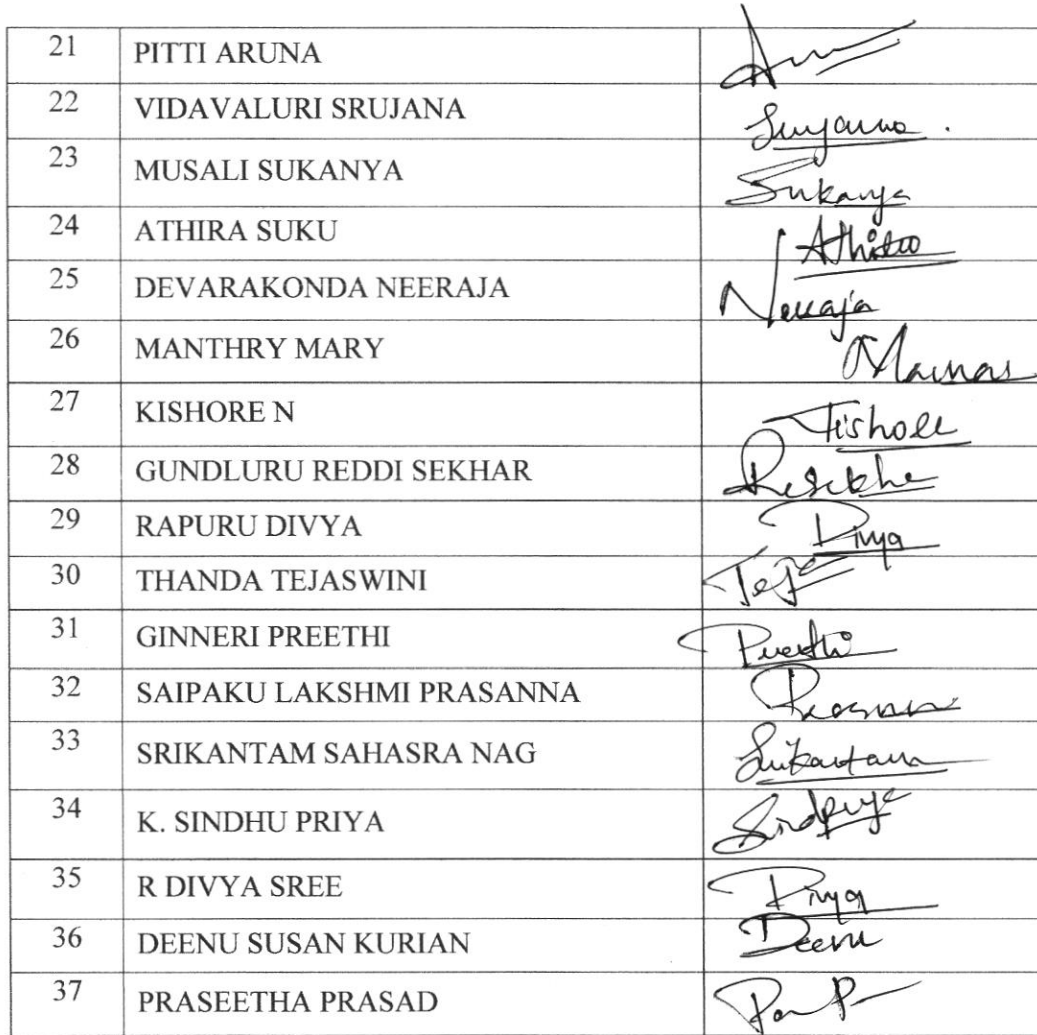 21 PITTI ARUNA
22 VIDAVALURI SRUJANA
23 MUSALI SUKANYA Sukanya
24 ATHIRA SUKU
25 DEVARAKONDA NEERAJA Neeraja
26 MANTHRY MARY
27 KISHORE N
28 GUNDLURU REDDI SEKHAR
29 RAPURU DIVYA Divya
30 THANDA TEJASWINI
31 GINNERI PREETHI Preethi
32 SAIPAKU LAKSHMI PRASANNA
33 SRIKANTAM SAHASRA NAG
34 K. SINDHU PRIYA
35 R DIVYA SREE Divya
36 DEENU SUSAN KURIAN Deenu
37 PRASEETHA PRASAD